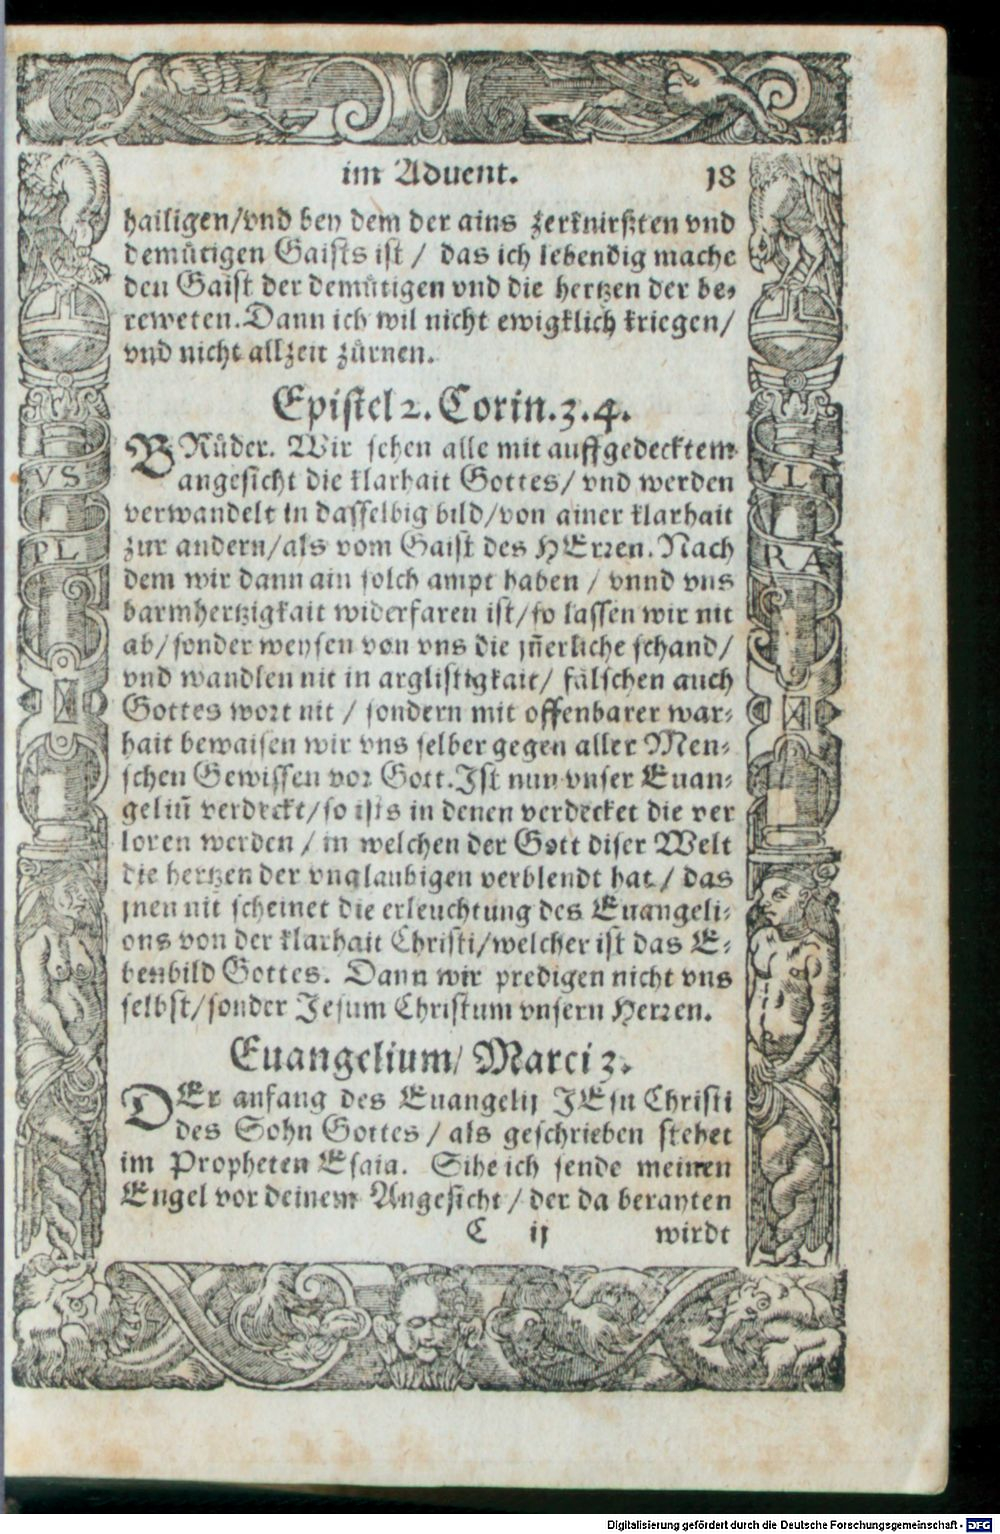 im Aduent. 18
hailigen/vnd bey dem der ains zerknirßten vnd
demůtigen Gaists ist / das ich lebendig mache
den Gaist der demůtigen vnd die hertzen der be-
reweten. Dann ich wil nicht ewigklich kriegen/
vnd nicht allzeit zürnen.
Epistel 2. Corin. 3. 4.
BRůder. Wir sehen alle mit auffgedecktem
angesicht die klarhait Gottes/ vnd werden
verwandelt in dasselbig bild/von ainer klarhait
zur andern/als vom Gaist des HErren. Nach
dem wir dann ain solch ampt haben / vnnd vns
barmhertzigkait widerfaren ist/so lassen wir nit
ab/sonder weysen von vns die jñerliche schand/
vnd wandlen nit in arglistigkait/ fälschen auch
Gottes wort nit / sondern mit offenbarer war-
hait bewaisen wir vns selber gegen aller Men-
schen Gewissen vor Gott. Ist nun vnser Euan-
geliū verdeckt/so ists in denen verdecket die ver
loren werden / in welchen der Gott diser Welt
die hertzen der vnglaubigen verblendt hat / das
jnen nit scheinet die erleuchtung des Euangeli-
ons von der klarhait Christi/welcher ist das E-
benbild Gottes. Dann wir predigen nicht vns
selbst/sonder Jesum Christum vnsern Herren.
Euangelium/ Marci 3.
DEr anfang des Euangelij JEsu Christi
des Sohn Gottes / als geschrieben stehet
im Propheten Esaia. Sihe ich sende meinen
Engel vor deinem Angesicht / der da berayten
C ij wirdt
VS
PL
VLT
RA
Digitalisierung gefördert durch die Deutsche Forschungsgemeinschaft - DFG